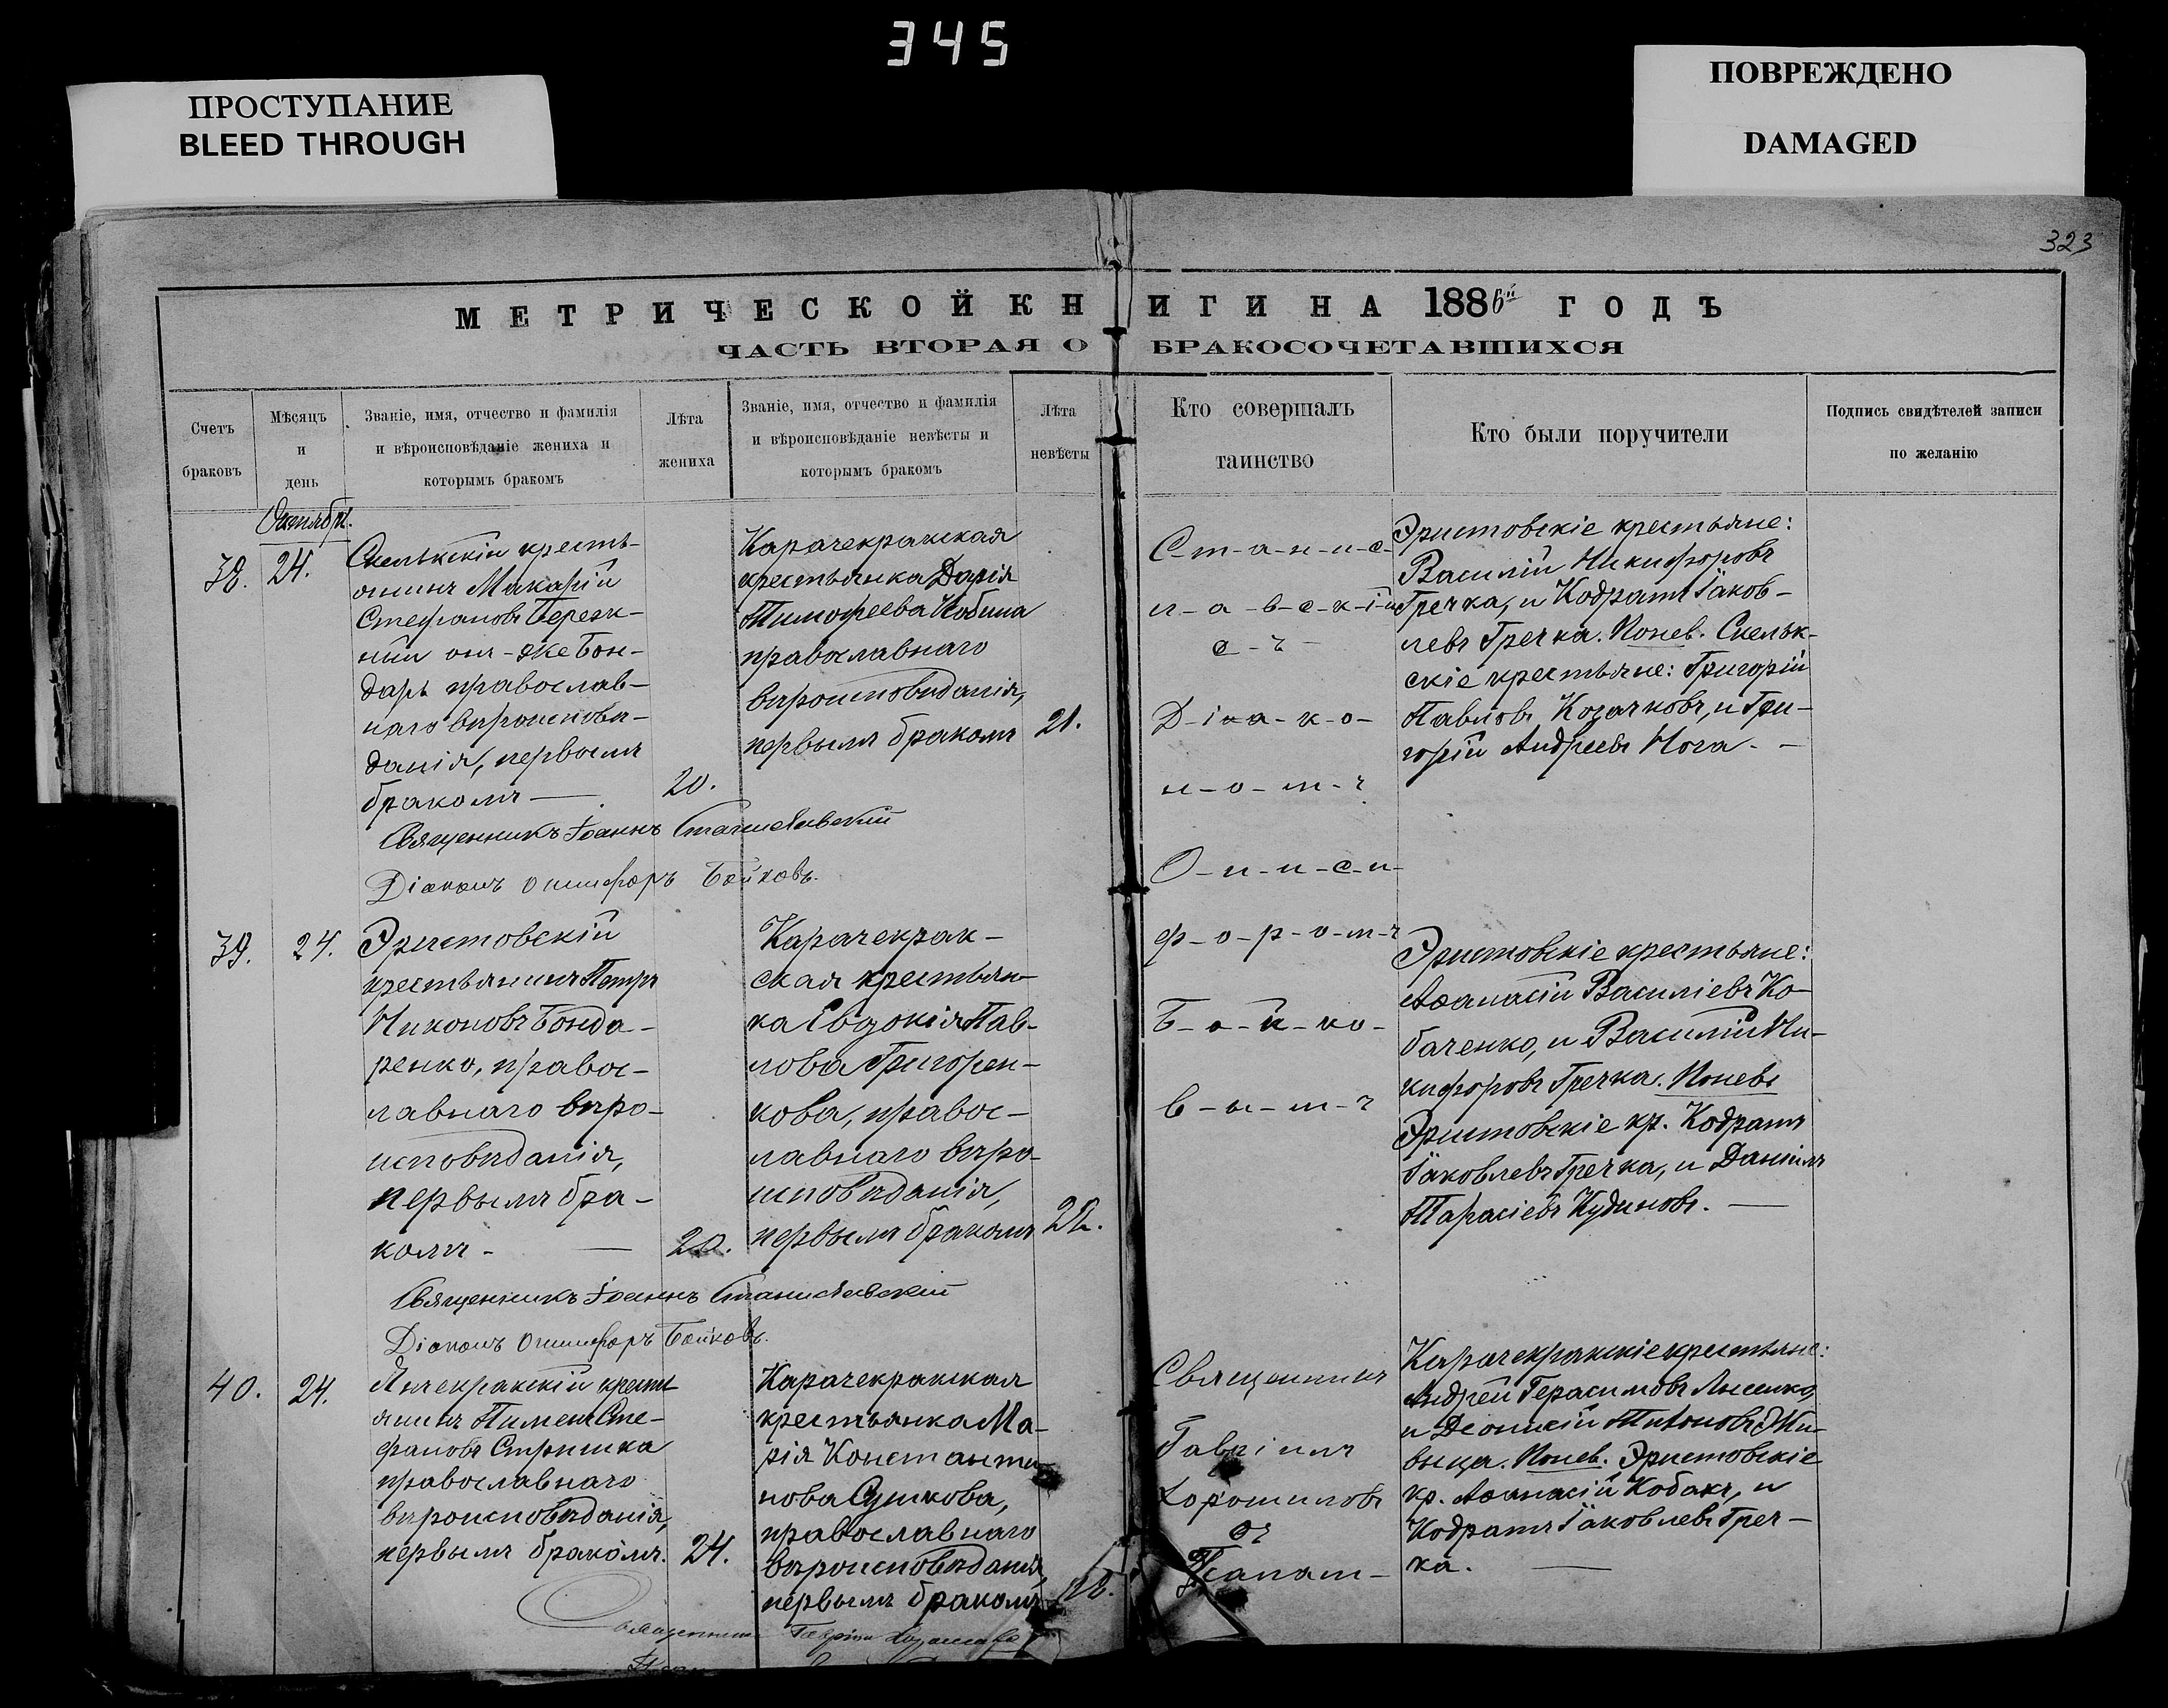 345
ПРОСТУПАНИЕ
BLEED THROUGH
ПОВРЕЖДЕНО
DAMAGED
323
МЕТРИЧЕСКОЙ КНИГИ НА 1886й ГОДЪ
ЧАСТЬ ВТОРАЯ О БРАКОСОЧЕТАВШИХСЯ
Счетъ
браковъ
Мѣсяцъ
и
день
Званіе, имя, отчество и фамилія
и вѣроисповѣданіе жениха и
которымъ бракомъ
Лѣта
жениха
Званіе, имя, отчество и фамилія
и вѣроисповѣданіе невѣсты и
которымъ бракомъ
Лѣта
невѣсты
Кто совершалъ
таинство
Кто были поручители
Подпись свидѣтелей записи
по желанію
Октября.
38.
24.
Скельскій кресть-
янинъ Макарій
Стефановъ Береж-
ный онъ-же Бон-
дарь православ-
наго вѣроисповѣ-
данія, первымъ
бракомъ —
20.
Карачекракская
крестьянка Дарія
Тимофеева Кобина
православнаго
вѣроисповѣданія,
первымъ бракомъ
21.
С-т-а-н-и-с-
л-а-в-с-к-ій
с-ъ -
Д-іа-к-о-
н-о-м-ъ
О-н-и-с-и-
ф-о-р-о-м-ъ
Б-о-й-ко-
в-ы-м-ъ
Эристовскіе крестьяне:
Василій Никифоровъ
Гречка, и Кодратъ Іаков-
левъ Гречка. Понев. Скельк-
скіе крестьяне: Григорій
Павловъ Козачковъ, и Гри-
горій Андреевъ Нога. -
Священникъ Іоаннъ Станиславскій
Діаконъ Онисифоръ Бойковъ.
39.
24.
Эристовскій
крестьянинъ Петръ
Никоновъ Бонда-
ренко, правос-
лавнаго вѣро-
исповѣданія,
первымъ бра-
комъ - —
20.
Карачекрак-
ская крестьян-
ка Евдокія Пав-
лова Григорен-
кова, правос-
лавнаго вѣро-
исповѣданія,
первымъ бракомъ
22.
Эристовскіе крестьяне:
Аѳанасій Василіевъ Ко-
баченко, и Василій Ни-
кифоровъ Гречка. Поневѣ
Эристовскіе кр. Кодратъ
Іаковлевъ Гречка, и Даніилъ
Тарасіевъ Кудиновъ. —
Священникъ Іоаннъ Станиславскій
Діаконъ Онисифоръ Бойковъ.
40.
24.
Янчекракскій крестья-
янинъ Пименъ Сте-
фановъ Стришка
православнаго
вѣроисповѣданія,
первымъ бракомъ.
24.
Карачекракская
крестьянка Ма-
рія Константи-
нова Сушкова,
православнаго
вѣроисповѣданія,
первымъ бракомъ
Священникъ
Гавріилъ
Хорошиловъ
съ
Псалом-
Карачекракскіе крестьяне:
Андрей Герасимовъ Лысенко,
и Деонисій Тихоновъ Жи-
вица. Понев. Эристовскіе
кр. Аѳанасій Кобакъ, и
Кодратъ Іаковлевъ Греч-
ка. —
Священникъ Гавріилъ